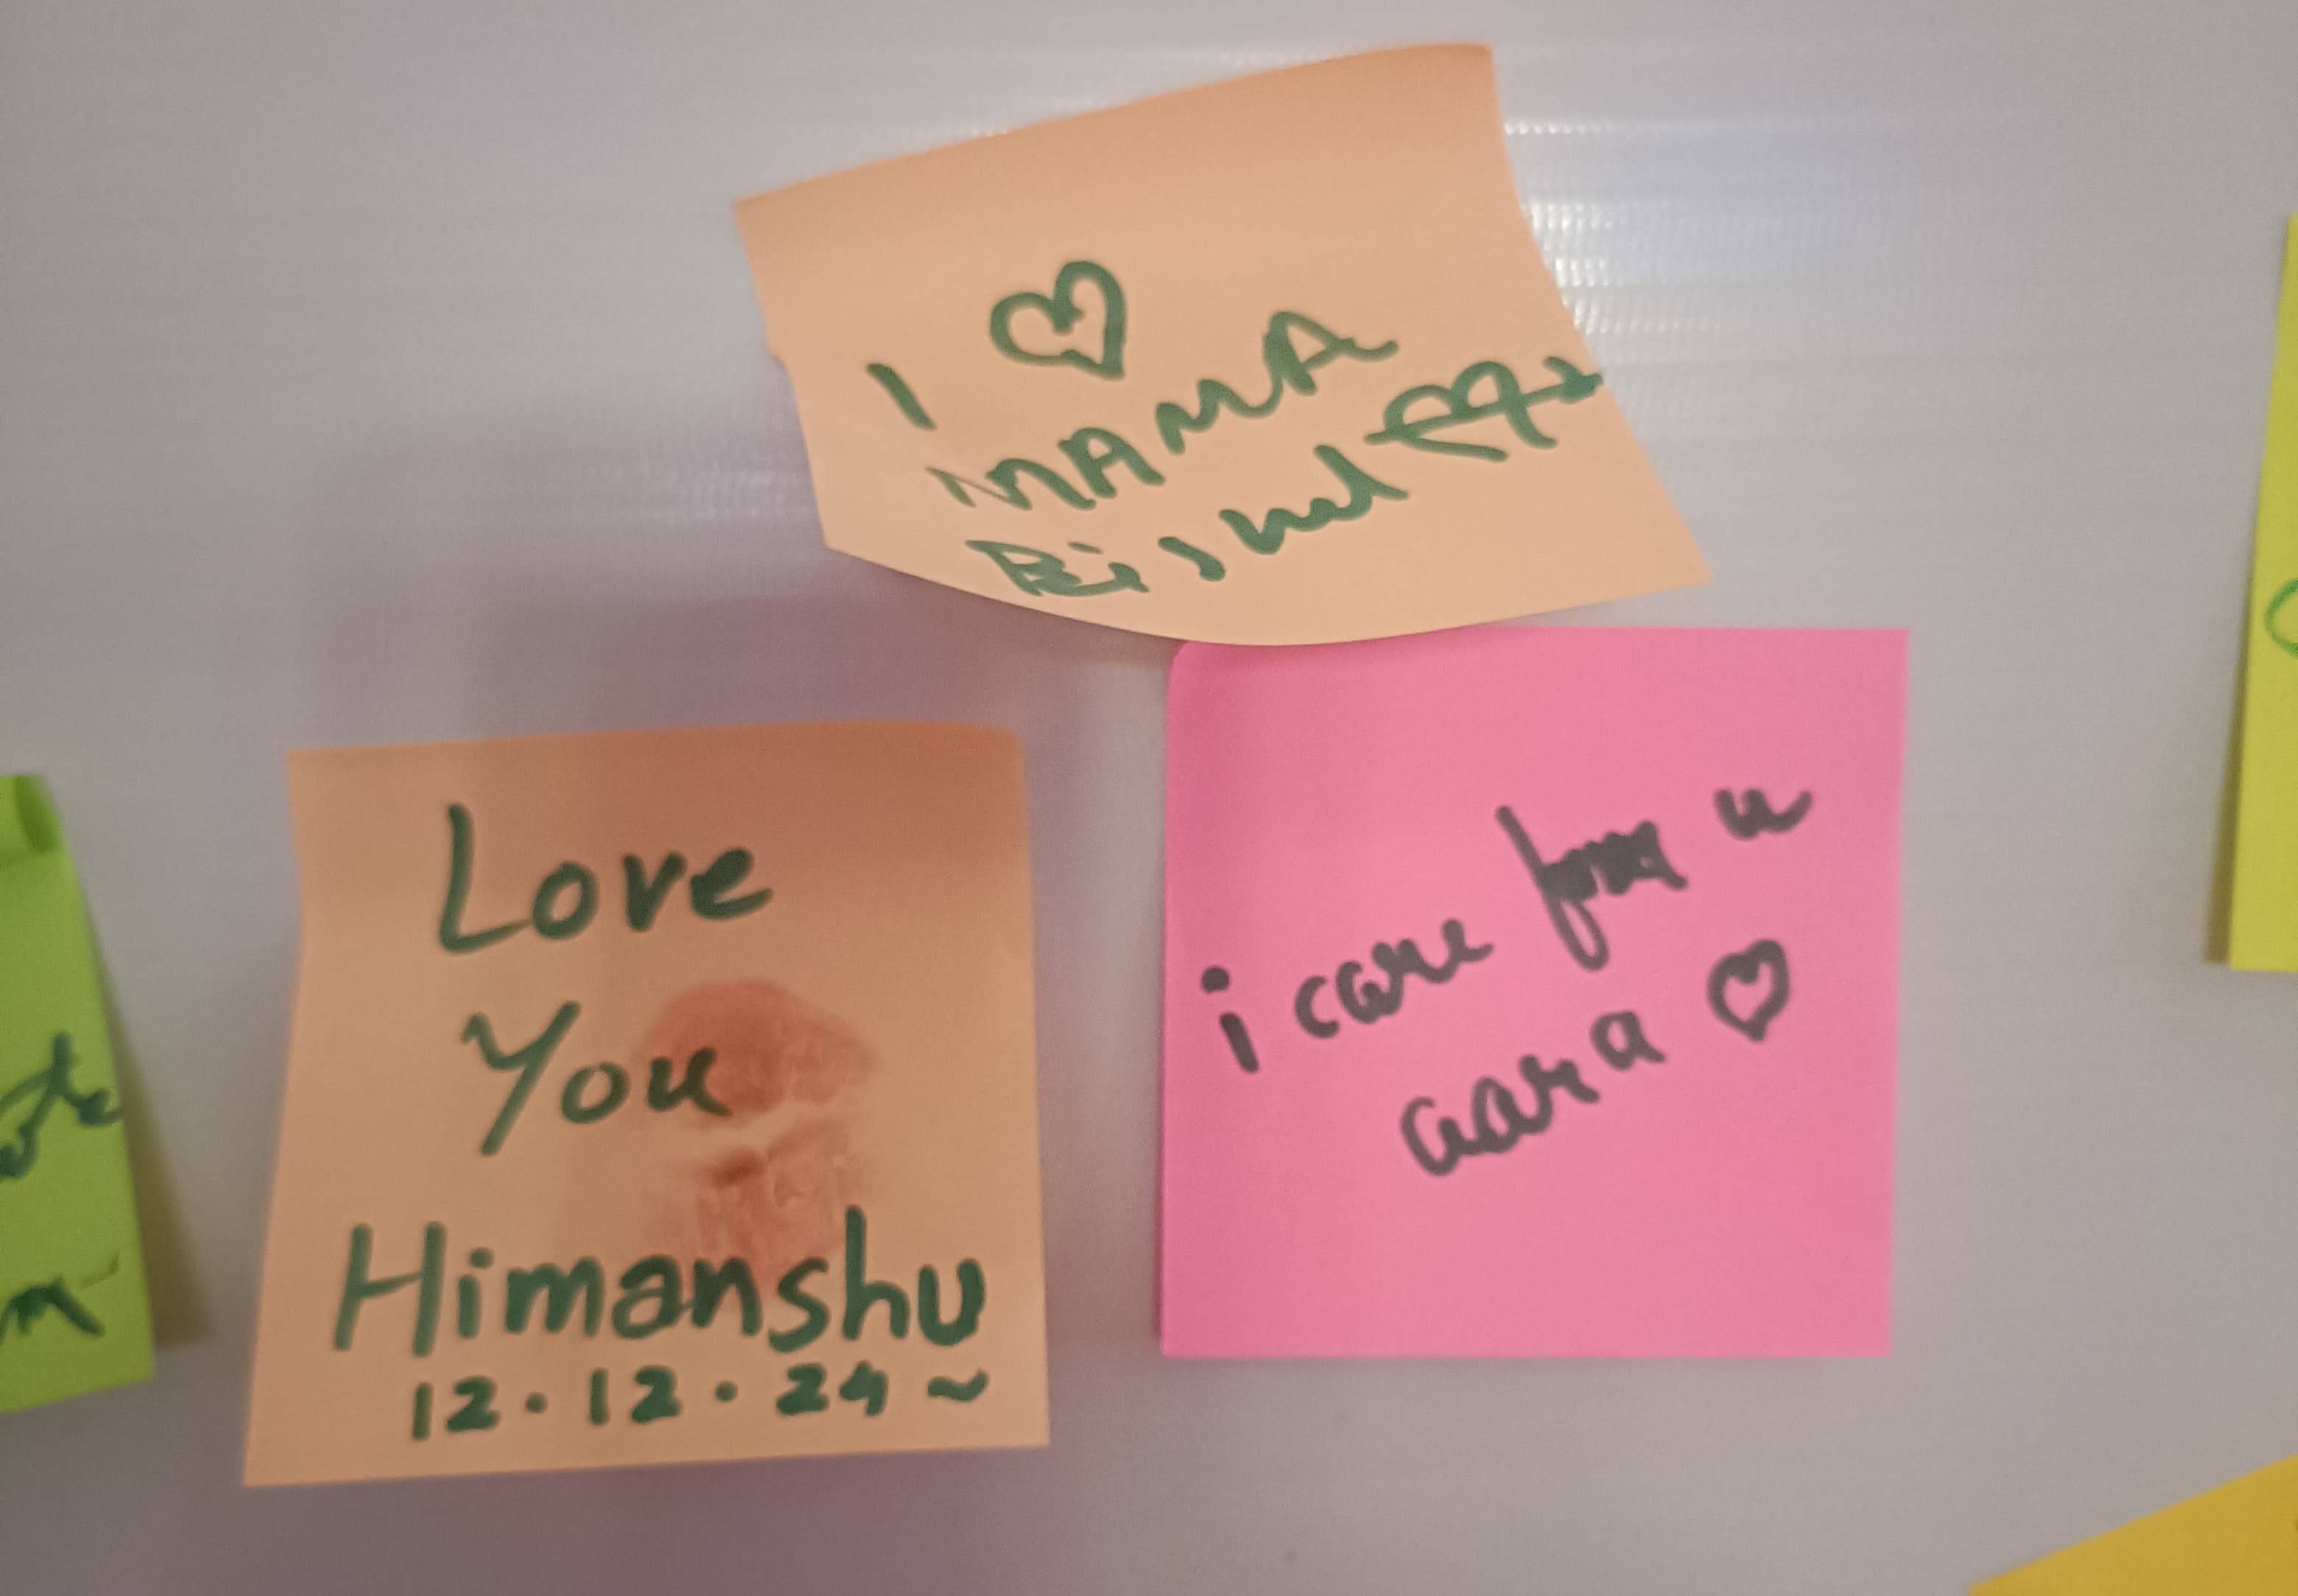 I ♡
MAMA
Love
You
Himanshu
12.12.24~
i care for u
aara ♡